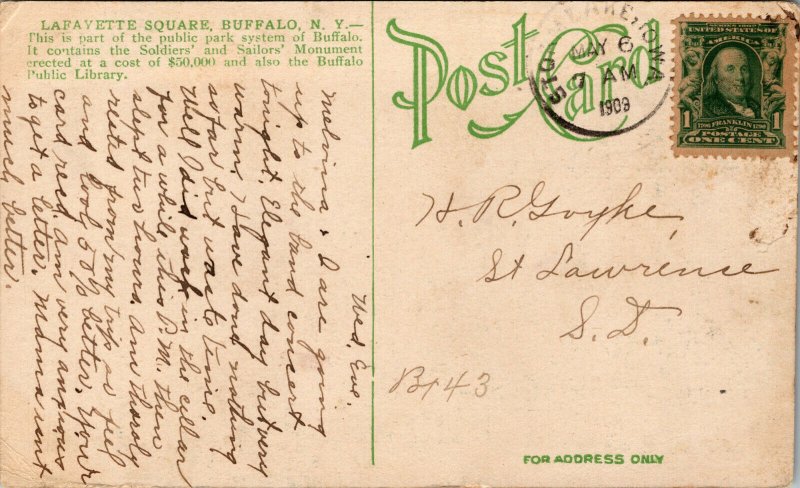 LAFAYETTE SQUARE, BUFFALO, N. Y.—
This is part of the public park system of Buffalo.
It contains the Soldiers' and Sailors' Monument
erected at a cost of $50,000 and also the Buffalo
Public Library.
Post Card
LAKE, IOWA
MAY 6
7 AM
1909
UNITED STATES OF
AMERICA
1706 FRANKLIN 1790
POSTAGE
1 ONE CENT 1
Wed, Eve.
Melvina & I are going
up to the band concert
tonight. Elegant day but very
warm. Have done nothing
so far but was to
Well I did work in the cellar
for a while this P.M. then
slept two hours. Am thoroly
rested from my trip & feel
and look 50% better. Your
card recd. am very anxious
to get a letter. Mama isnt
much better.
H. R. Goyke,
St Lawrence
S. D.
43
FOR ADDRESS ONLY